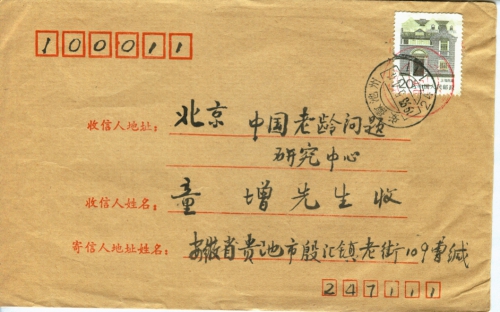 100011
收信人地址： 北京 中国老龄问题
研究中心
收信人姓名： 童 增先生收
寄信人地址姓名： 安徽省贵池市殷汇镇老街109 缄
247111